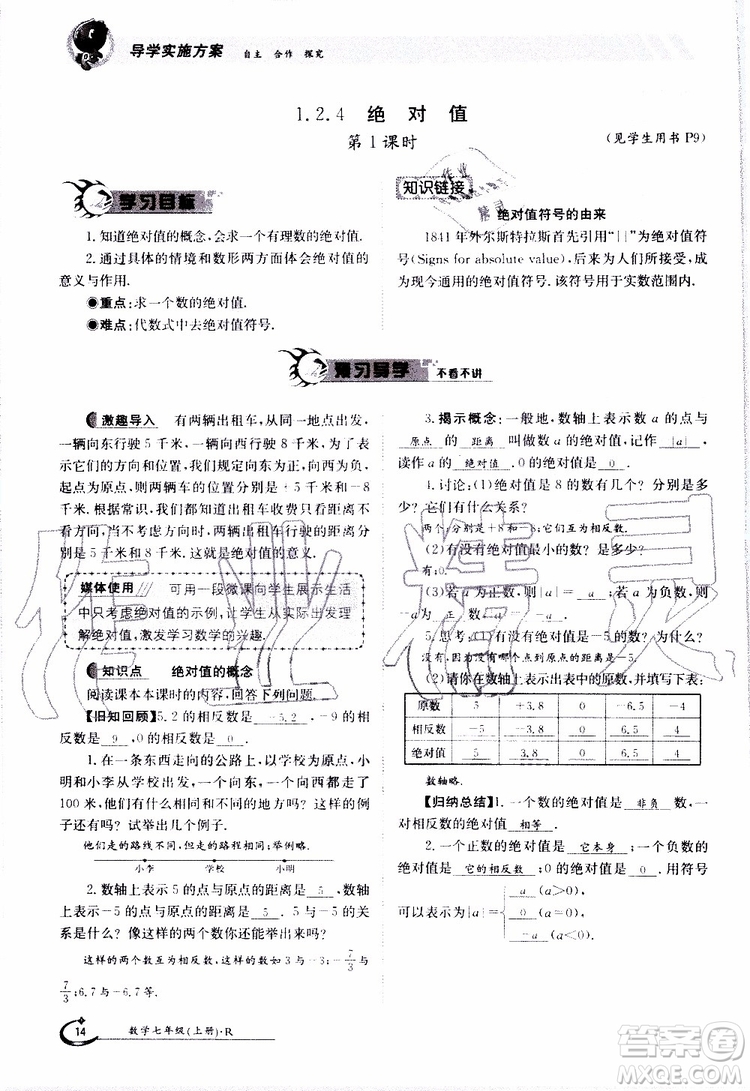 导学实施方案 自主 合作 探究
1.2.4 绝对值
第1课时
(见学生用书 P9)
学习目标
1.知道绝对值的概念,会求一个有理数的绝对值.
2.通过具体的情境和数形两方面体会绝对值的
意义与作用.
●重点:求一个数的绝对值.
●难点:代数式中去绝对值符号.
知识链接
绝对值符号的由来
1841 年外尔斯特拉斯首先引用“||”为绝对值符
号(Signs for absolute value),后来为人们所接受,成
为现今通用的绝对值符号.该符号用于实数范围内.
预习导学 不看不讲
激趣导入 有两辆出租车,从同一地点出发,
一辆向东行驶 5 千米,一辆向西行驶 8 千米,为了表
示它们的方向和位置,我们规定向东为正,
起点为原点,则两辆车的位置分别记为
千米和-8千米.但是,考虑出租车收费时只看行驶距离不
看方向,当不考虑方向时,两辆车的行驶距离分别为
5 千米和 8 千米,这就是绝对值的意义.
媒体使用 可用一段微课向学生展示生活
中只考虑绝对值的示例,让学生从实际出发理
解绝对值,激发学习数学的兴趣.
知识点 绝对值的概念
阅读课本本课时的内容,回答下列问题.
【旧知回顾】5.2 的相反数是 -5.2 ,-9 的相反
数是 9 ,0 的相反数是 0 .
1.在一条东西走向的公路上,以学校为原点,小
明和小李从学校出发,一个向东,一个向西都走了
100 米,他们有什么相同和不同的地方吗?这样的例
子多吗?试举出几个例子.
他们走的路线不同,但走的路程相同.举例略.
小李 学校 小明
2.数轴上表示 5 的点与原点的距离是 5 ,数
轴上表示-5 的点与原点的距离是 5 ,5 与-5 有
什么关系?像这样的两个数你还能举出来吗?
这样的两个数互为相反数.如 3 与-3;-7/3与
7/3;6.7 与-6.7 等.
3.揭示概念:一般地,数轴上表示数 a 的点与
原点 的 距离 叫做数 a 的绝对值,记作 |a| ,
读作 a 的 绝对值 .0 的绝对值是 0 .
4.讨论:(1)绝对值是 8 的数有几个?分别是多
少?它们有什么关系?
两个;分别是+8 和-8;它们互为相反数.
(2)有没有绝对值最小的数?是多少?
有;0.
(3)若 a 为正数,则|a| = a ;若 a 为负数,则
-a 为 正 数,|a| = -a .
5.思考:(1)有没有绝对值为负数的数?为什么?
没有,因为没有哪个点到原点的距离是负数.
(2)请你在数轴上表示出表中的原数,并填写下表.
原数 5 +3.8 0 -6.5 -4
相反数 -5 -3.8 0 6.5 4
绝对值 5 3.8 0 6.5 4
数轴略.
【归纳总结】1.一个数的绝对值是 非负 数,一
对相反数的绝对值 相等 .
2.一个正数的绝对值是 它本身 ;一个负数的
绝对值是 它的相反数 ;0 的绝对值是 0 .用符号
可以表示为|a|= a (a>0), 0 (a=0), -a (a<0).
14 数学七年级(上册)·R
作业精灵
作业精灵
MXQE.COM